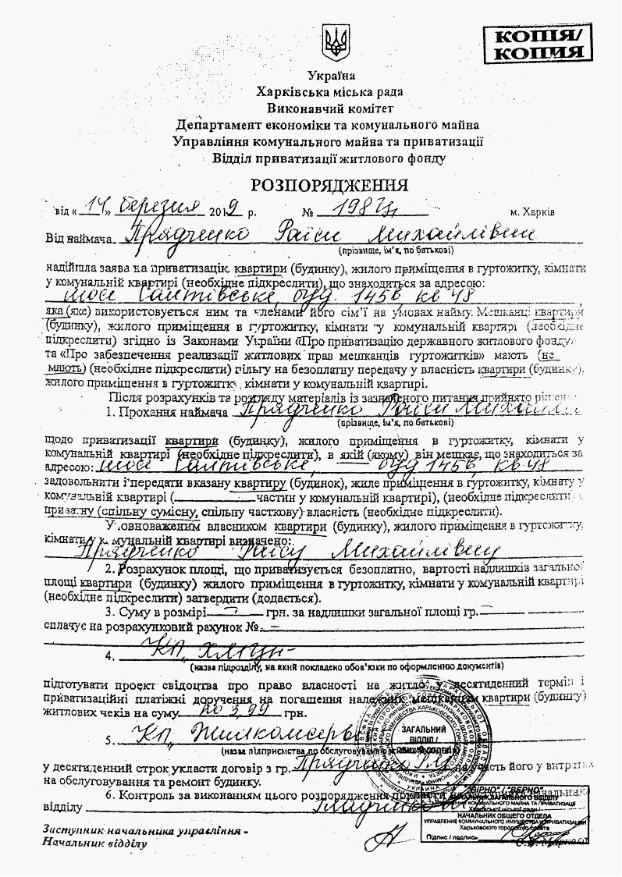 КОПІЯ/
КОПИЯ
Україна
Харківська міська рада
Виконавчий комітет
Департамент економіки та комунального майна
Управління комунального майна та приватизації
Відділ приватизації житлового фонду
РОЗПОРЯДЖЕННЯ
від « 14 » березня 2019 р. № м. Харків
Від наймача Прядченко Раїси Михайлівни
(прізвище, ім'я, по батькові)
надійшла заява на приватизацію квартири (будинку), жилого приміщення в гуртожитку, кімнати
у комунальній квартирі (необхідне підкреслити), що знаходиться за адресою:
шосе Салтівське, буд. 145б кв 48
яка (яке) використовується ним та членами його сім'ї на умовах найму. Мешканці квартири
(будинку), жилого приміщення в гуртожитку, кімнати у комунальній квартирі (необхідне
підкреслити) згідно із Законами України «Про приватизацію державного житлового фонду»
та «Про забезпечення реалізації житлових прав мешканців гуртожитків» мають (не
мають) (необхідне підкреслити) пільгу на безоплатну передачу у власність квартири (будинку),
жилого приміщення в гуртожитку, кімнати у комунальній квартирі.
Після розрахунків та розгляду матеріалів із зазначеного питання прийнято
1. Прохання наймача Прядченко Раїси
(прізвище, ім'я, по батькові)
щодо приватизації квартири (будинку), жилого приміщення в гуртожитку, кімнати у
комунальній квартирі (необхідне підкреслити), в якій (якому) він мешкає, що знаходиться за
адресою: шосе Салтівське, буд 145б, кв 48
задовольнити і передати вказану квартиру (будинок), жиле приміщення в гуртожитку, кімнату у
комунальній квартирі ( частин у комунальній квартирі), (необхідне підкреслити) у
приватну (спільну сумісну, спільну часткову) власність (необхідне підкреслити).
Уповноваженим власником квартири (будинку), жилого приміщення в гуртожитку,
кімнати у комунальній квартирі визначено:
Прядченко Раїсу Михайлівну
2. Розрахунок площі, що приватизується безоплатно, вартості надлишків загальної
площі квартири (будинку) жилого приміщення в гуртожитку, кімнати у комунальній квартирі
(необхідне підкреслити) затвердити (додається).
3. Суму в розмірі — грн. за надлишки загальної площі гр. —
сплачує на розрахунковий рахунок № —
4.
(назва підрозділу, на який покладено обов'язки по оформленню документів)
підготувати проект свідоцтва про право власності на житло у десятиденний термін і
приватизаційні платіжні доручення на погашення належних мешканцям квартири (будинку)
житлових чеків на суму по 3,99 грн.
5. КП „Жилкомсервіс"
(назва підприємства по обслуговуванню
у десятиденний строк укласти договір з гр. Прядченко Р.М. участь його у витратах
на обслуговування та ремонт будинку.
6. Контроль за виконанням цього розпорядження покласти на начальника
відділу
ЗАГАЛЬНИЙ
ВІДДІЛ /
"ВІРНО" / "ВЕРНО"
НАЧАЛЬНИК ОБЩЕГО ОТДЕЛА
УПРАВЛЕНИЕ КОММУНАЛЬНОГО ИМУЩЕСТВА И ПРИВАТИЗАЦИИ
Харьковского городского совета
Підпис / подпись
Заступник начальника управління -
Начальник відділу